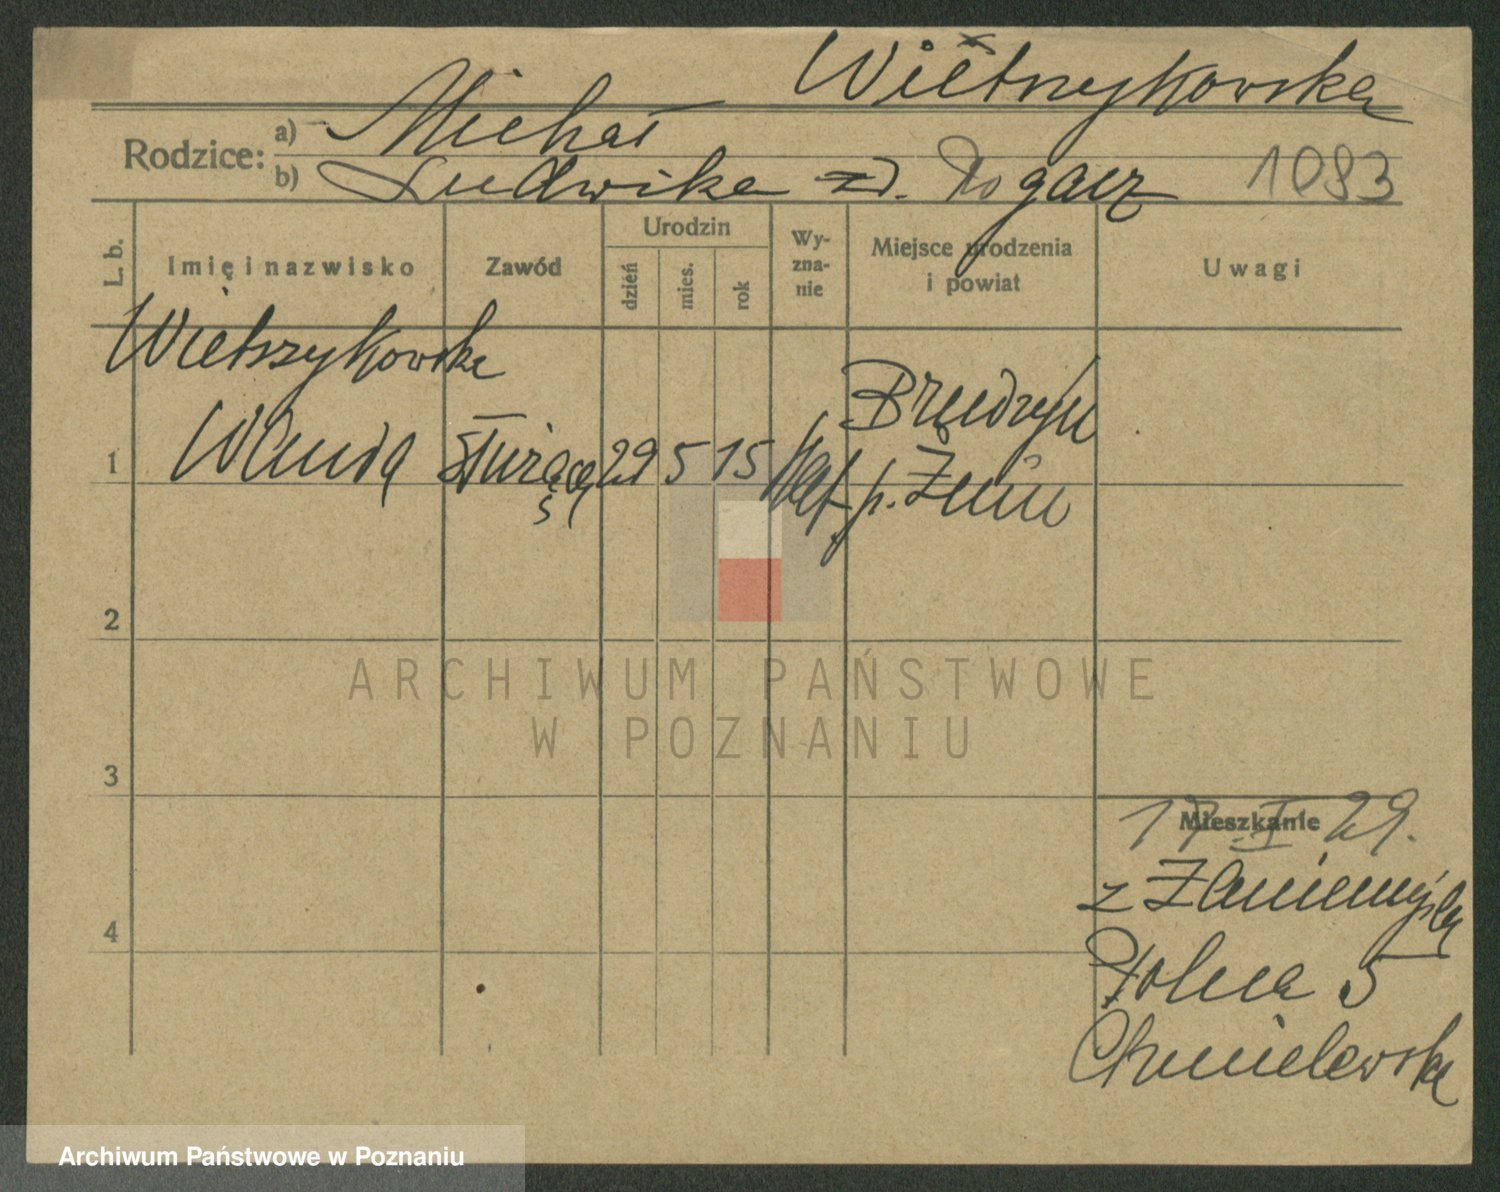 Wietrzykowska
Rodzice: a) Michał
b) Ludwika zd. Rogacz 1083
L. b. Imię i nazwisko Zawód Urodzin dzień mies. rok Wyzna-nie Miejsce urodzenia i powiat Uwagi
Wietrzykowska
Brudzyń
1 Wanda służąca 29 5 15 kat p. Żnin
2
ARCHIWUM PAŃSTWOWE
W POZNANIU
3
Mieszkanie
17 I 29.
z Zaniemyśla
4
Polna 5
Chmielewska
Archiwum Państwowe w Poznaniu